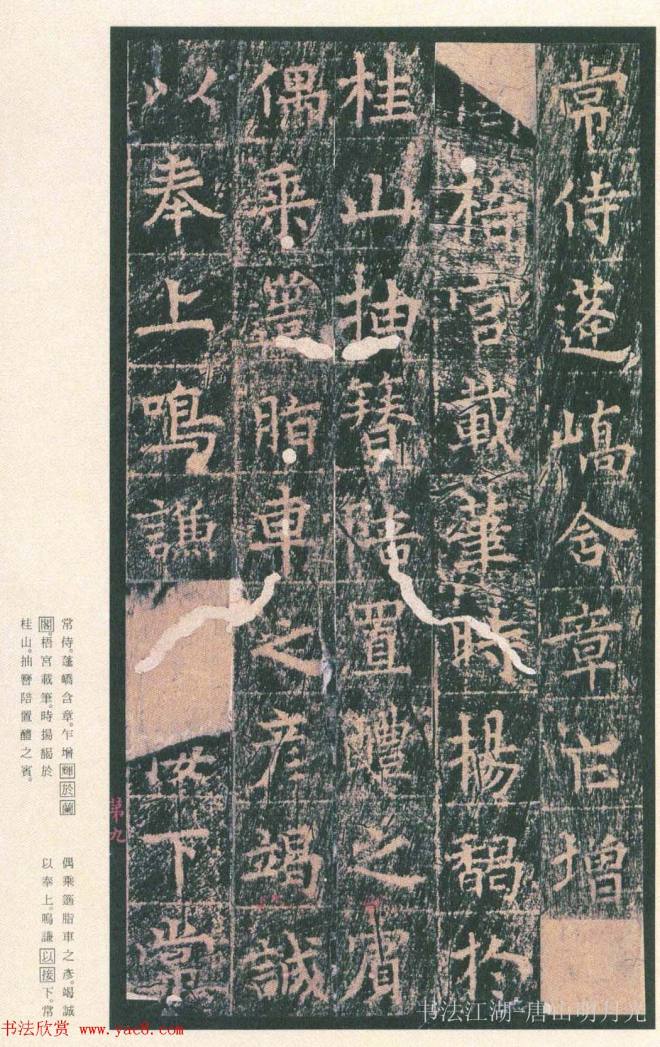 常侍蓬嶠含章乍増
梧宮載筆時揚馤於
桂山抽簪陪置醴之賓
偶乘簉脂車之彦竭誠
以奉上鳴謙以下常
第九
常侍。蓬嶠含章。乍增輝於蘭
閣。梧宮載筆。時揚馤於
桂山。抽簪陪置醴之賓。
偶乘簉脂車之彥。竭誠
以奉上。鳴謙以接下。常
书法欣赏 www.yac8.com
书法江湖-唐山明月光